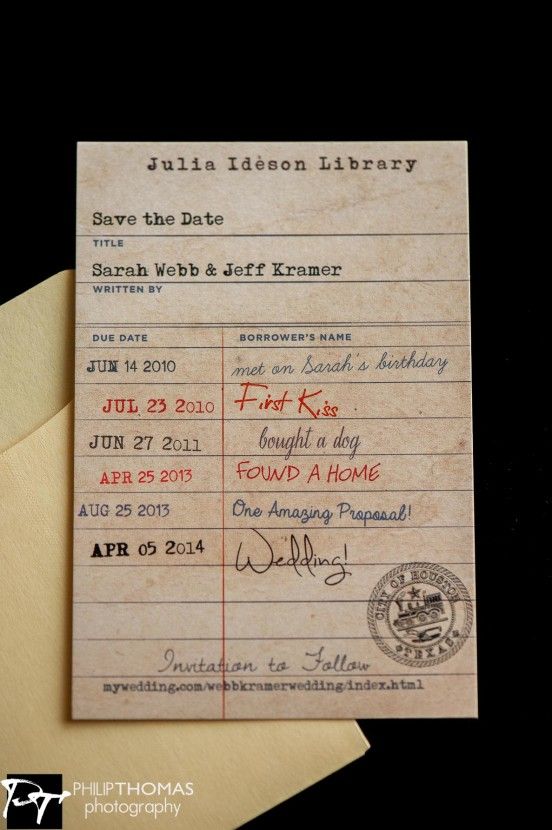 Julia Idèson Library
Save the Date
TITLE
Sarah Webb & Jeff Kramer
WRITTEN BY
DUE DATE BORROWER'S NAME
JUN 14 2010 met on Sarah's birthday
JUL 23 2010 First Kiss
JUN 27 2011 bought a dog
APR 25 2013 FOUND A HOME
AUG 25 2013 One Amazing Proposal!
APR 05 2014 Wedding!
CITY OF HOUSTON
TEXAS
Invitation to Follow
mywedding.com/webbkramerwedding/index.html
PT PHILIPTHOMAS
photography